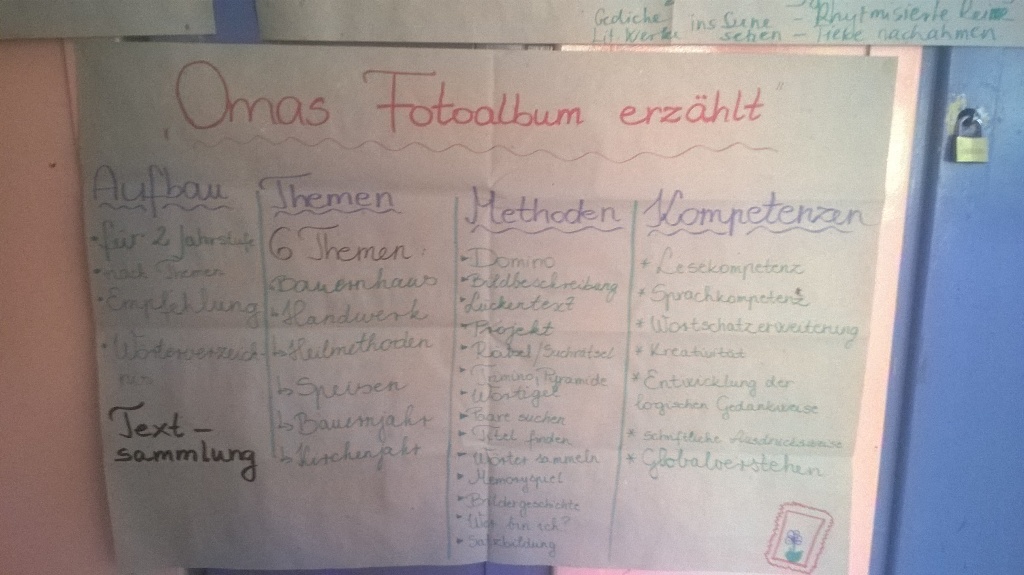 Gediche ins Szene - Rhytmisierte Reime
Lit. Werke sehen - Texte nachahmen
"Omas Fotoalbum erzählt"
Aufbau
• für 2 Jahrstufe
• nach Themen
• Empfehlung
• Wörterverzeich-
nis
Text-
sammlung
Themen
6 Themen:
Bauernhaus
↳ Handwerk
↳ Heilmethoden
↳ Speisen
↳ Bauernjahr
↳ Kirchenjahr
Methoden
Domino
Bildbeschreibung
Lückentext
Projekt
Rätsel/Suchrätsel
Tamino, Pyramide
Wortigel
Paare suchen
Titel finden
Wörter sammeln
Memoryspiel
Bildergeschichte
Wer bin ich?
Satzbildung
Kompetenzen
* Lesekompetenz
* Sprachkompetenz
* Wortschatzerweiterung
* Kreativität
* Entwicklung der
logischen Gedankweise
* schriftliche Ausdrucksweise
* Globalverstehen